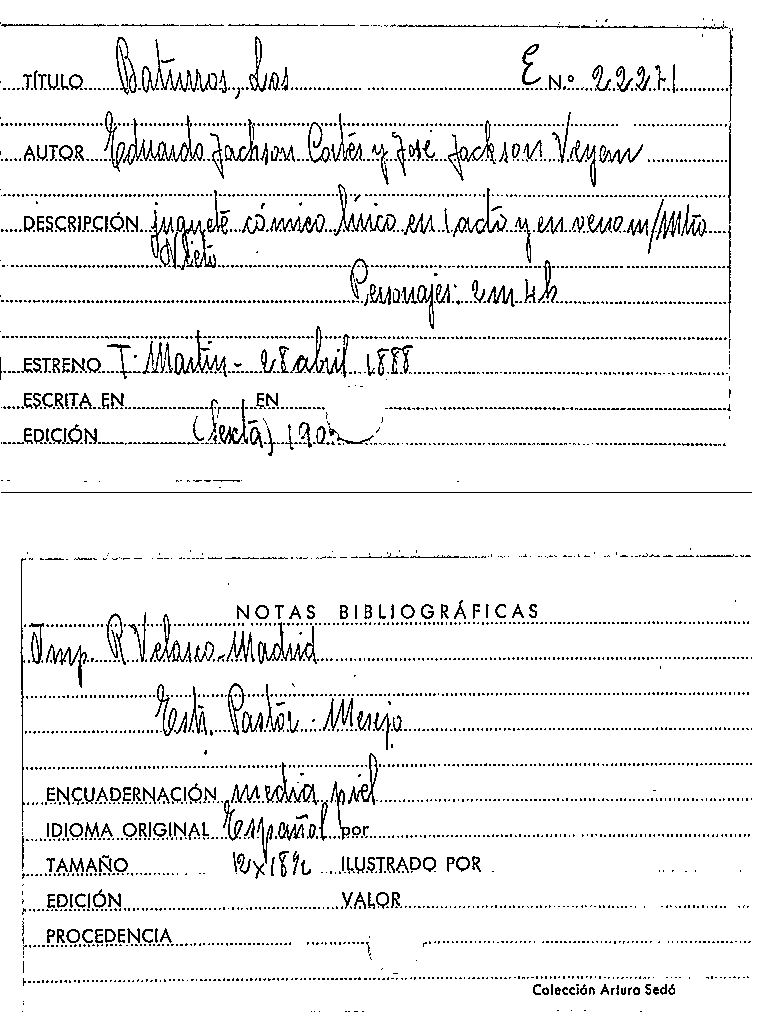 TÍTULO Baturros, Los E N.º 22271
AUTOR Eduardo Jackson Cortés y José Jackson Veyan
DESCRIPCIÓN juguete cómico lírico en 1 acto y en verso m/Mtro
Nieto
Personajes: 2m 4h
ESTRENO T. Martín - 28 abril 1888
ESCRITA EN EN
EDICIÓN (Sexta) 1902
NOTAS BIBLIOGRÁFICAS
Imp. R Velasco-Madrid
Estr. Pastor - Mesejo
ENCUADERNACIÓN media piel
IDIOMA ORIGINAL Español por
TAMAÑO 12x18½ ILUSTRADO POR
EDICIÓN VALOR
PROCEDENCIA
Colección Arturo Sedó